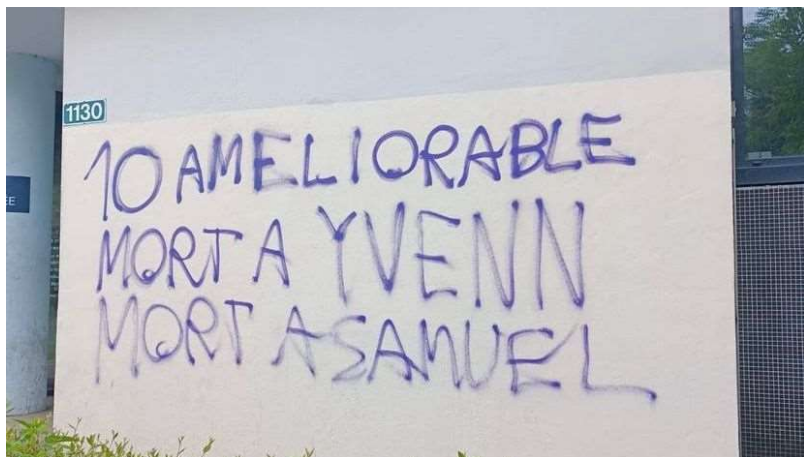 1130
10 AMELIORABLE
EE
MORT A YVENN
MORT A SAMUEL